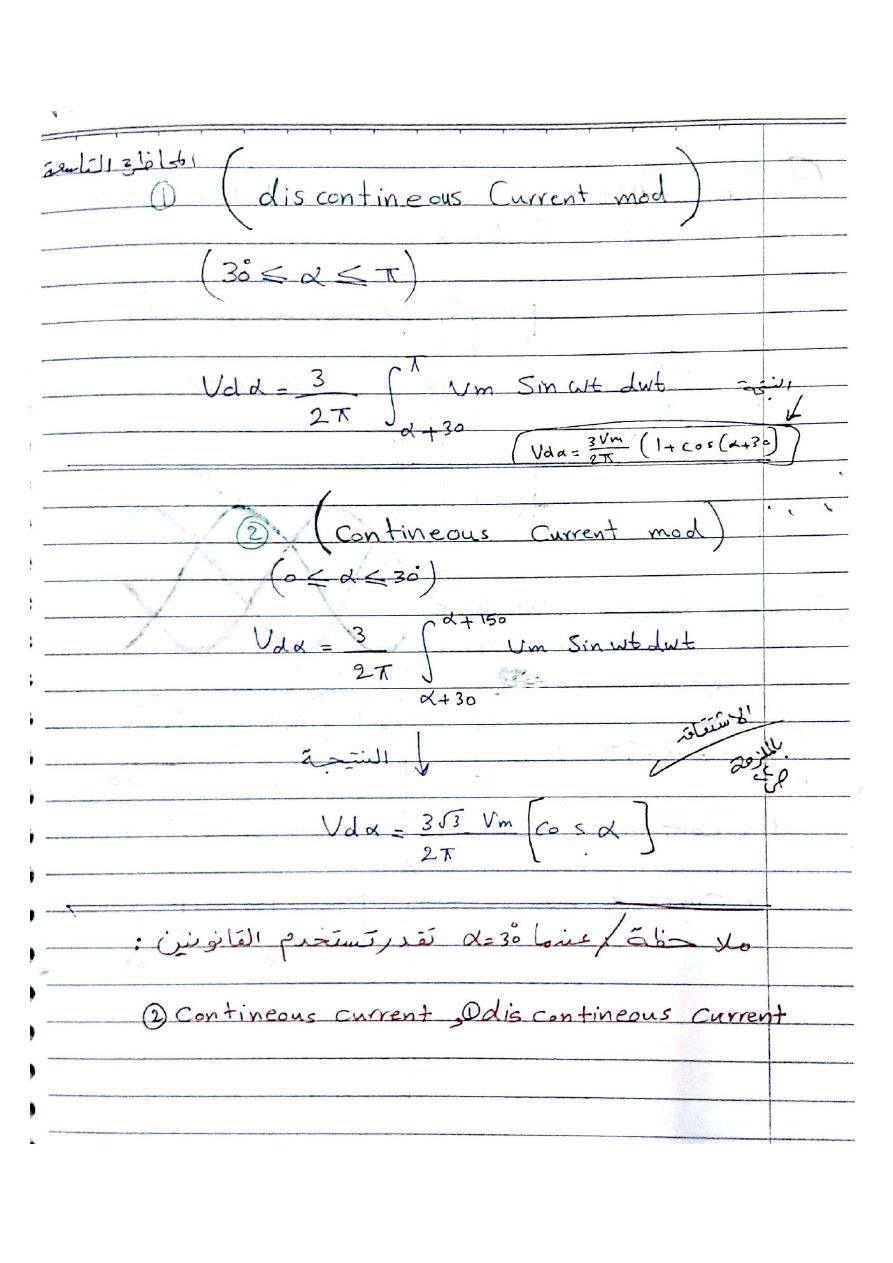 المحاضرة التاسعة
① (discontineous Current mod)
(30° ≤ α ≤ π)
Vdα = 3/2π ∫_{α+30}^{π} Vm Sin wt dwt
النتيجة
Vdα = 3Vm/2π (1+cos(α+30)
② (Contineous Current mod)
(0 ≤ α ≤ 30°)
Vdα = 3/2π ∫_{α+30}^{α+150} Vm Sin wt dwt
الاشتقاقه
بالملزمة
النتيجة
Vdα = 3√3 Vm/2π [cos α]
ملاحظة/ عندما α=30° تقدر تستخدم القانونين :
② Contineous current و ① discontineous Current